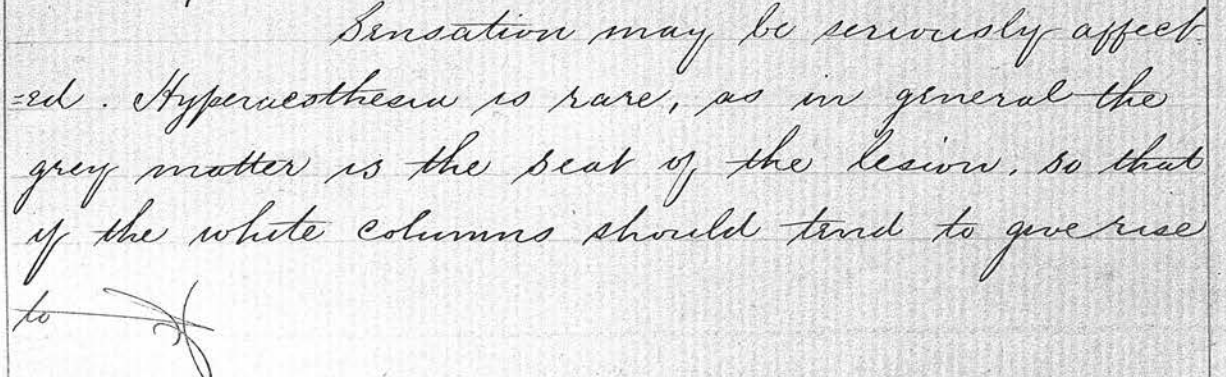 Sensation may be seriously affect
=ed. Hyperaesthesia is rare, as in general the
grey matter is the seat of the lesion, so that
if the white columns should tend to give rise
to